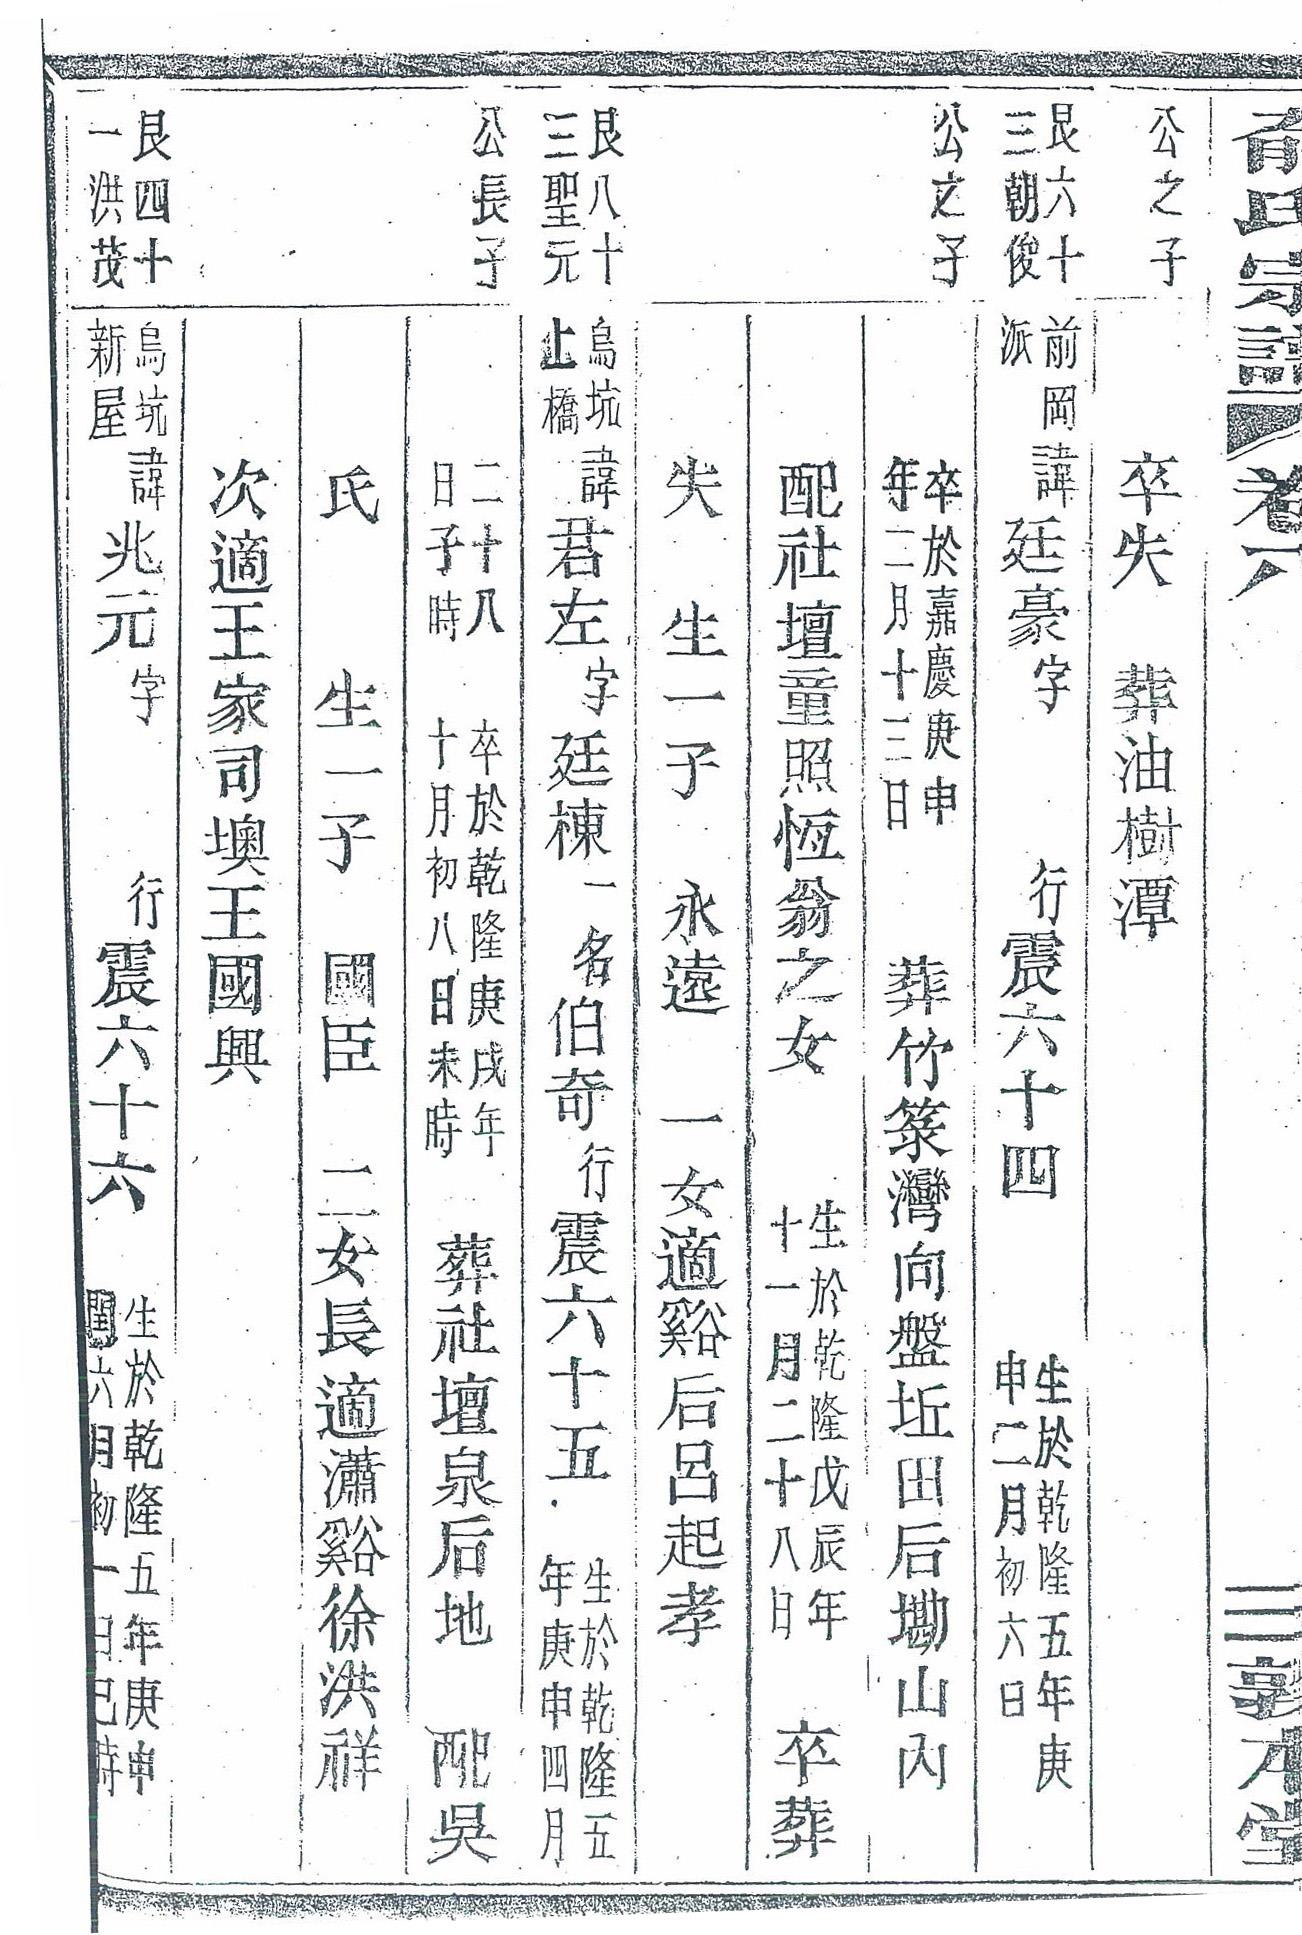 氏宗譜 卷八 三 敦本堂
公之子
卒失 葬油樹潭
艮六十
三朝俊
公之子
前岡
派
諱廷豪字 行震六十四 生於乾隆五年庚
申二月初六日
卒於嘉慶庚申
年二月十三日 葬竹篆灣向盤坵田后墈山內
配社壇童照恆翁之女 生於乾隆戊辰年
十一月二十八日 卒葬
失 生一子 永遠 一女適谿后呂起孝
艮八十
三聖元
公長子
烏坑
上橋
諱君左字廷棟一名伯奇行震六十五 生於乾隆五
年庚申四月
二十八
日子時 卒於乾隆庚戌年
十月初八日未時 葬社壇泉后地 配吳
氏 生一子 國臣 二女長適瀟谿徐洪祥
次適王家司墺王國興
艮四十
一洪茂
烏坑
新屋
諱兆元字 行震六十六 生於乾隆五年庚申
閏六月初一日巳時